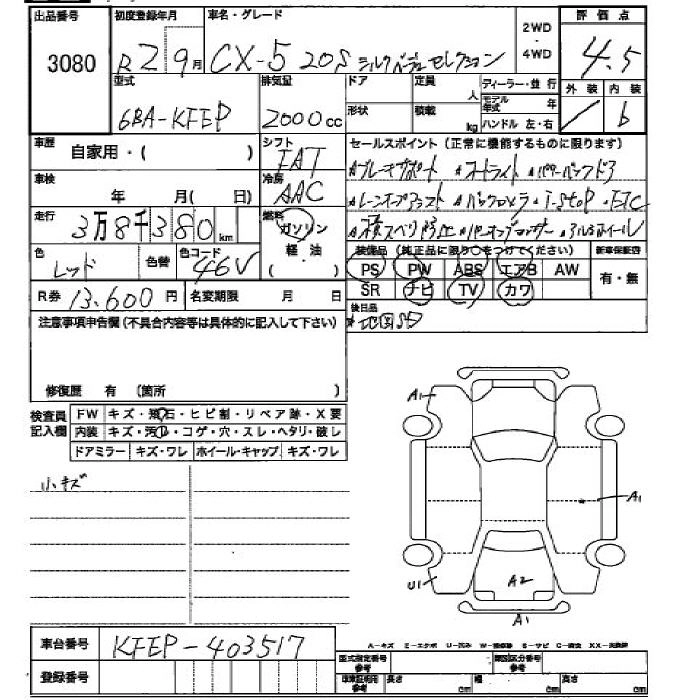 出品番号 初度登録年月 車名・グレード 2WD・4WD 評価点
3080 R2 9月 CX-5 20S シルクベージュセレクション 4.5
型式 排気量 ドア 定員 人 ディーラー・並行 外装 内装
6BA-KFEP 2000cc 形状 積載 kg モデル年式 年 b
ハンドル 左・右
車歴 自家用・( ) シフト セールスポイント(正常に機能するものに限ります)
FAT *ブレーキサポート *オートライト *パワーバックドア
車検 年 月( 日) 冷房 AAC *レーンキープアシスト *バックカメラ *i-stop ・ETC
走行 3万8千380km 燃料 ガソリン・軽油・( ) *横スベリ防止 *アルミホイール
色 レッド 色替 色コード 46V 装備品(純正品に限り○をつけてください) 新車保証書
PS PW ABS エアB AW 有・無
R券 13.600円 名変期限 月 日 SR ナビ TV カワ
注意事項申告欄(不具合内容等は具体的に記入して下さい) 後日品
*地図SD
修復歴 有 (箇所 )
検査員記入欄 FW キズ・飛石・ヒビ割・リペア跡・X要
内装 キズ・汚レ・コゲ・穴・スレ・ヘタリ・破レ
ドアミラー キズ・ワレ ホイール・キャップ キズ・ワレ
A1
小キズ
A1
U1
A2
A1
車台番号 KFEP-403517
A-キズ
登録番号 型式指定番号 類別区分番号
長さ cm 幅 cm 高さ cm